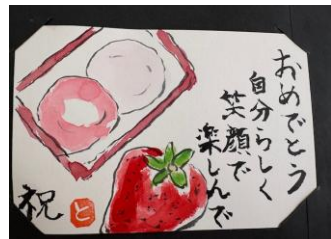 おめでとう
自分らしく
笑顔で
楽しんで
祝
と